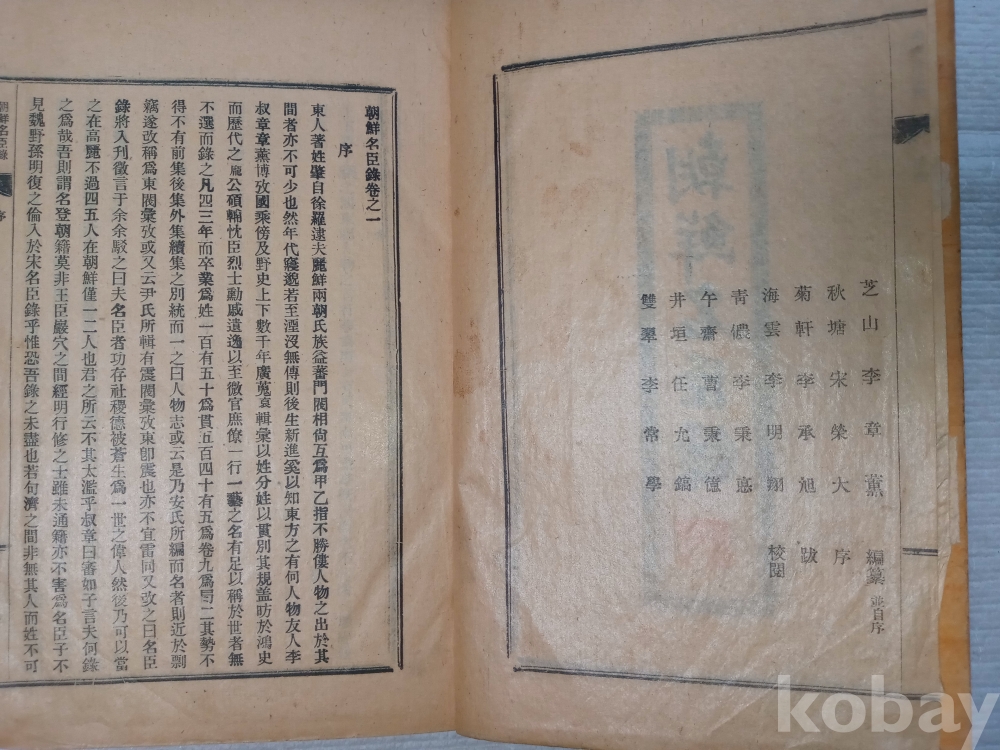 芝山李章薰 編纂 並自序
秋塘宋榮大 序
菊軒李承旭 跋
海雲李明翔 校閲
靑儂李秉悳
午齋曺秉億
井垣任允鎬
雙翠李常學
朝鮮名臣錄卷之一
序
東人著姓肇自徐羅逮夫麗鮮兩朝氏族益蕃門閥相尙互爲甲乙指不勝僂人物之出於其
間者亦不可少也然年代寢邈若至湮沒無傳則後生新進奚以知東方之有何人物友人李
叔章章薰博攷國乘傍及野史上下數千年廣蒐裒輯彙以姓分姓以貫別其規盖昉於鴻史
而歷代之龐公碩輔忱臣烈士勳戚遺逸以至微官庶僚一行一藝之名有足以稱於世者無
不選而錄之凡四三年而卒業爲姓一百有五十爲貫五百四十有五爲卷九爲局二其勢不
得不有前集後集外集續集之別統而一之曰人物志或云是乃安氏所編而名者則近於剽
竊遂改稱爲東閣彙攷或又云尹氏所輯有震閣彙攷東卽震也亦不宜雷同又改之曰名臣
錄將入刋徵言于余余駁之曰夫名臣者功存社稷德被蒼生爲一世之偉人然後乃可以當
之在高麗不過四五人在朝鮮僅一二人也君之所云不其太濫乎叔章曰審如子言夫何錄
之爲哉吾則謂名登朝籍莫非王臣嚴穴之間經明行修之士雖未通籍亦不害爲名臣子不
見魏野孫明復之倫入於宋名臣錄乎惟恐吾錄之未盡也若句濟之間非無其人而姓不可
朝鮮名臣錄 序
kobay